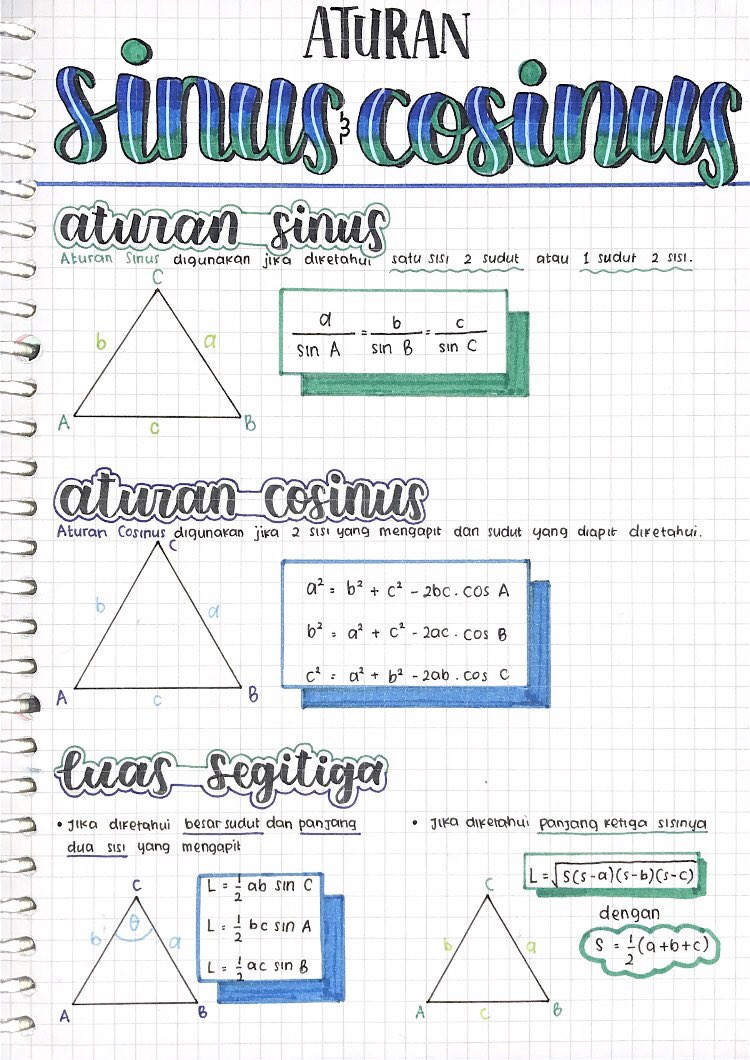 ATURAN
sinus & cosinus
aturan sinus
Aturan Sinus digunakan jika diketahui satu sisi 2 sudut atau 1 sudut 2 sisi.
C
b a
A B
c
a/sin A = b/sin B = c/sin C
aturan cosinus
Aturan Cosinus digunakan jika 2 sisi yang mengapit dan sudut yang diapit diketahui.
C
b a
A B
c
a² = b² + c² - 2bc . cos A
b² = a² + c² - 2ac . cos B
c² = a² + b² - 2ab . cos C
luas segitiga
• Jika diketahui besar sudut dan panjang
dua sisi yang mengapit
C
θ
b a
A B
L = 1/2 ab sin C
L = 1/2 bc sin A
L = 1/2 ac sin B
• Jika diketahui panjang ketiga sisinya
L = √s(s-a)(s-b)(s-c)
dengan
s = 1/2 (a+b+c)
C
b a
A B
c